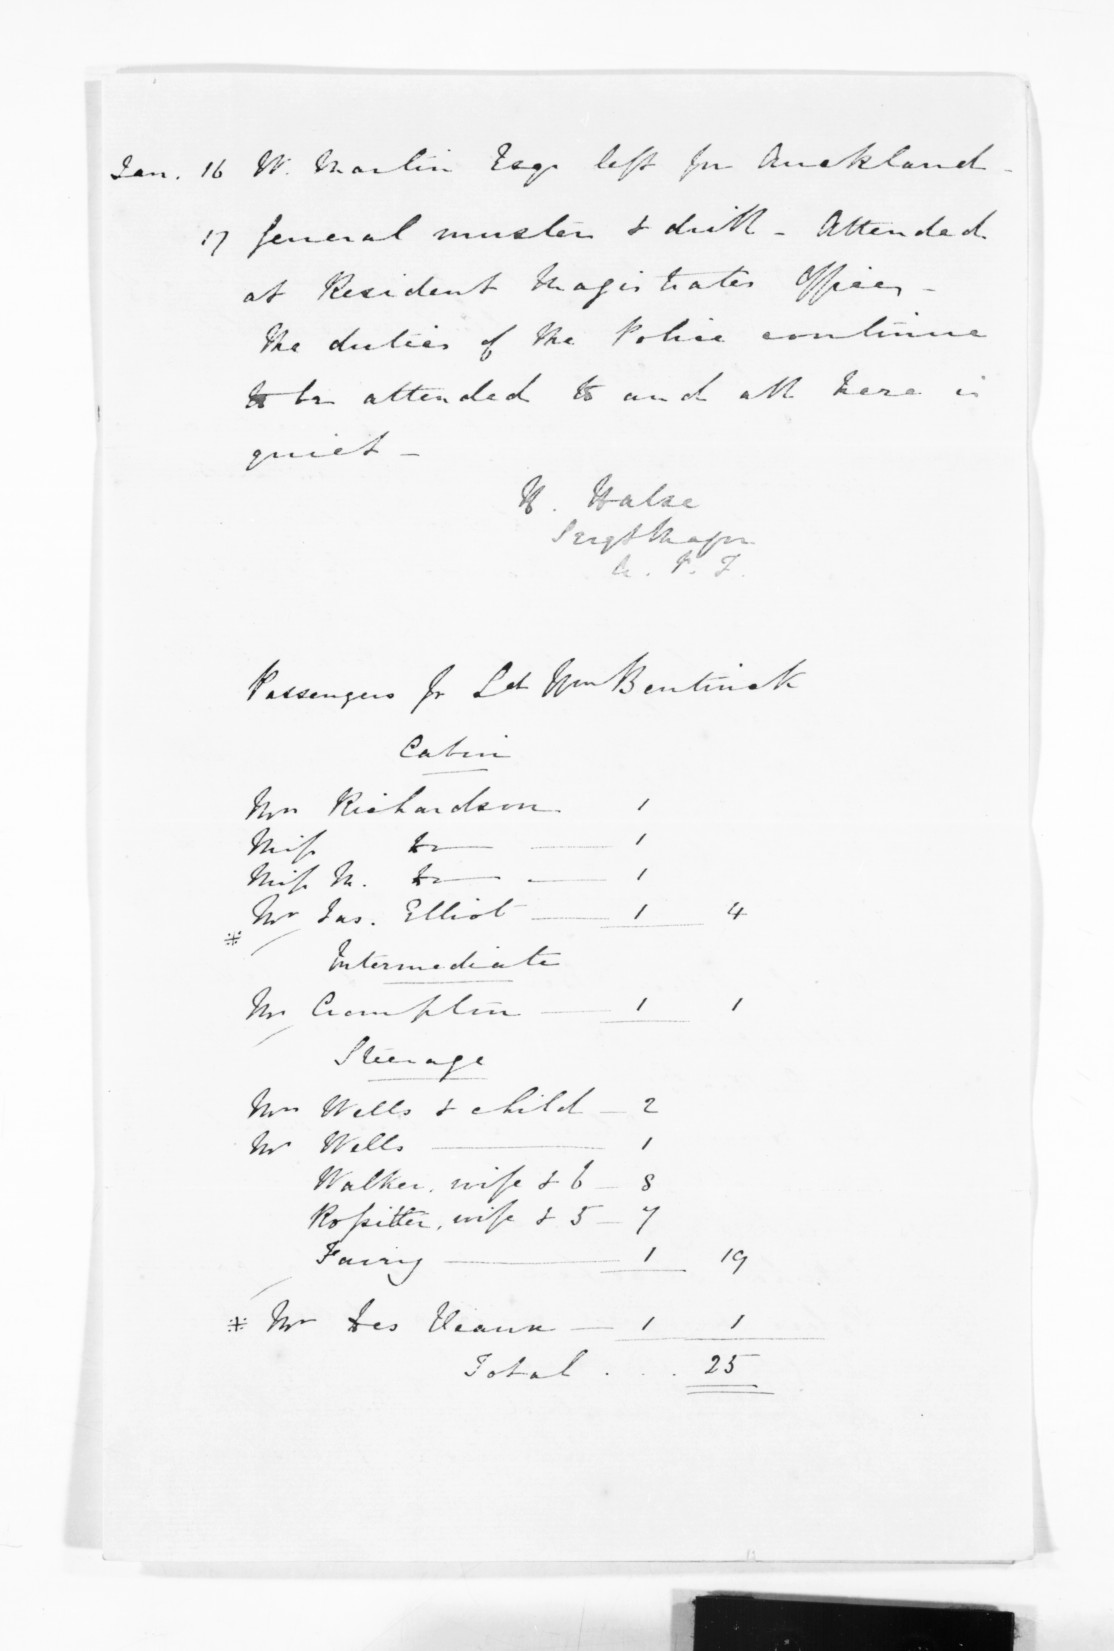 Jan. 16 W. Martin Esqr left for Auckland -
17 General muster & drill - Attended
at Resident Magistrates Office, -
The duties of the Police continue
to be attended to and all here is
quiet -
H. Halse
Sergt Major
A. P. F.
Passengers pr Ld Wm Bentinck
Cabin
Mrs Richardson 1
Miss Do 1
Miss M. Do 1
Mr Jas. Elliot 1 4
Intermediate
Mr Cromptin 1 1
Steerage
Mrs Wells & child - 2
Mr Wells 1
Walker, wife & 6 - 8
Rossitter, wife & 5 - 7
Fairy 1 19
Mr 1 1
Total . . . 25